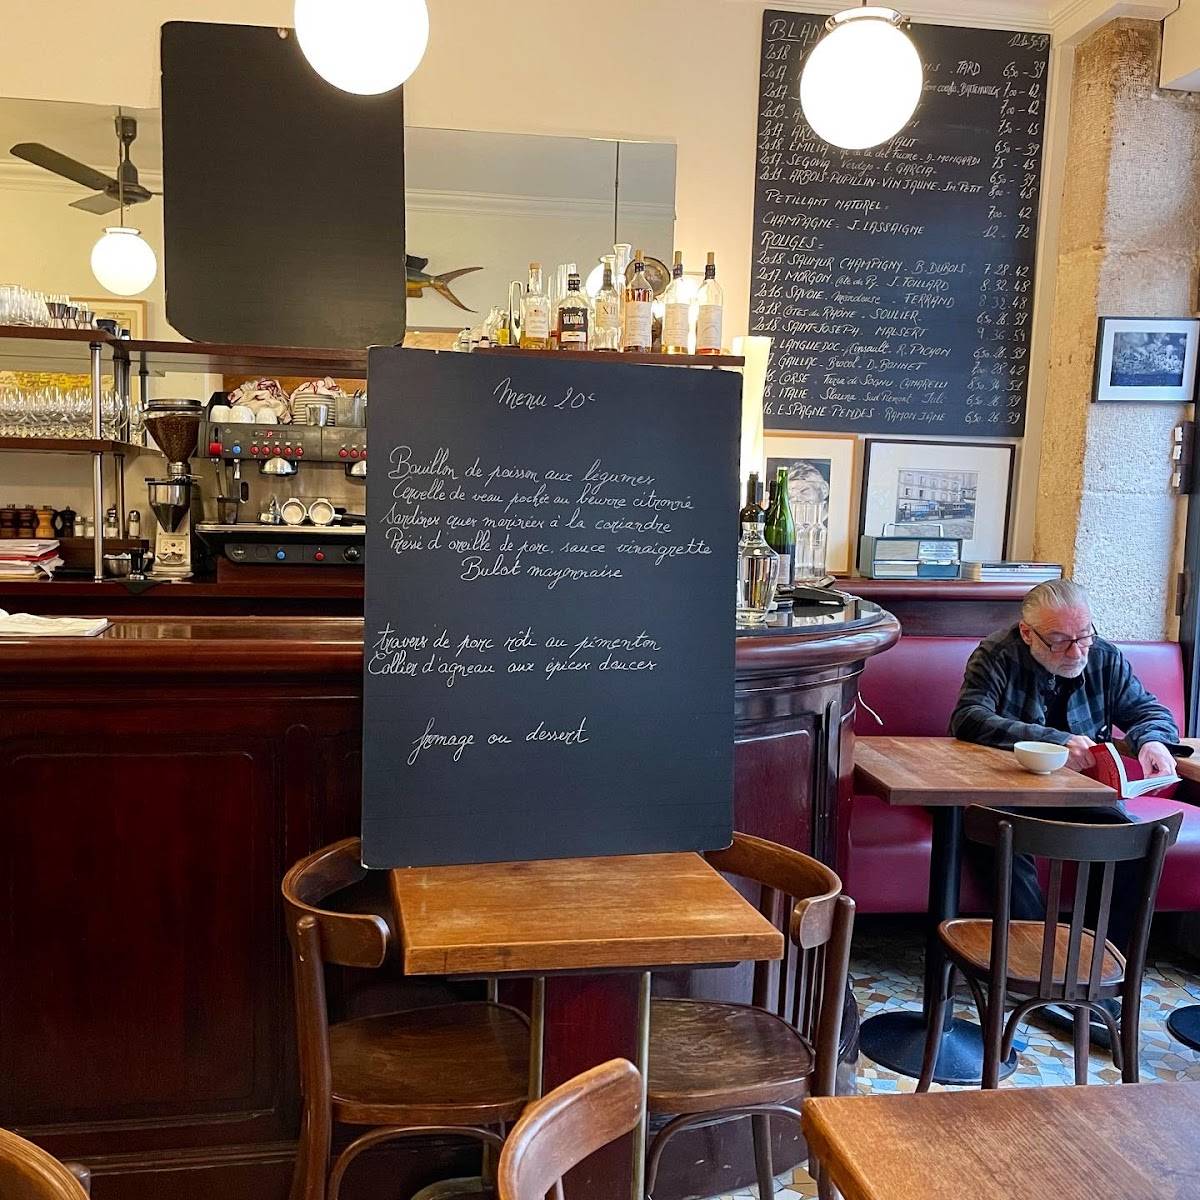 Menu 20€
Bouillon de poisson aux légumes
Cervelle de veau pochée au beurre citronné
Sardines crues marinées à la coriandre
Pressé d'oreille de porc, sauce vinaigrette
Bulot mayonnaise
travers de porc rôti au pimenton
Collier d'agneau aux épices douces
fromage ou dessert
BLAN
2018
TARD 6,50 - 39
2017
7,00 - 42
2017
2013
7,50 - 45
2017
6,50 - 39
2018. EMILIA D. MONGARDI 75 - 45
2017. SEGOVIA - Verdejo - E. GARCIA 6,50 - 39
2011. ARBOIS-PUPILLIN-VIN JAUNE 8,00 - 48
PETILLANT NATUREL = 7,00 42
CHAMPAGNE - J. LASSAIGNE 12 - 72
ROUGES =
2018 SAUMUR CHAMPIGNY - B. DUBOIS 7 - 28 - 42
2017. MORGON, Côte du Py - J. FOILLARD 8. 32. 48
2016. SAVOIE - Mondeuse - FERRAND 8. 32. 48
2018. CÔTES du RHÔNE - SOULIER 6,50. 26. 39
2018. SAINT-JOSEPH. 9. 36. 54
LANGUEDOC - Cinsault - R. PICHON 6,50. 26. 39
GAILLAC - Braucol - D. BONNET 7,00. 28. 42
CORSE - CANARELLI 8,50. 34. 51
ITALIE 6,50. 26. 39
16. ESPAGNE - PENDES - RAMON JANE 6,50. 26. 39